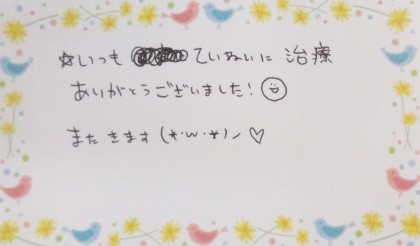 ☆いつも ていねいに 治療
ありがとうございました!
またきます(*・w・*)ノ♡